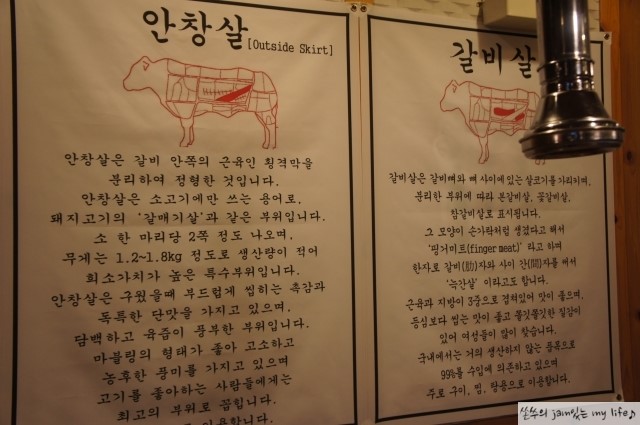 안창살[Outside Skirt]
안창살은 갈비 안쪽의 근육인 횡격막을
분리하여 정형한 것입니다.
안창살은 소고기에만 쓰는 용어로,
돼지고기의 '갈매기살'과 같은 부위입니다.
소 한 마리당 2쪽 정도 나오며,
무게는 1.2~1.8kg 정도로 생산량이 적어
희소가치가 높은 특수부위입니다.
안창살은 구웠을때 부드럽게 씹히는 촉감과
독특한 단맛을 가지고 있으며,
담백하고 육즙이 풍부한 부위입니다.
마블링의 형태가 좋아 고소하고
농후한 풍미를 가지고 있으며
고기를 좋아하는 사람들에게는
최고의 부위로 꼽힙니다.
이용합니다.
갈비살
갈비살은 갈비뼈와 뼈 사이에 있는 살코기를 가리키며,
분리한 부위에 따라 본갈비살, 꽃갈비살,
참갈비살로 표시됩니다.
그 모양이 손가락처럼 생겼다고 해서
'핑거미트(finger meat)' 라고 하며
한자로 갈비(肋)자와 사이 간(間)자를 써서
'늑간살' 이라고도 합니다.
근육과 지방이 3중으로 겹쳐있어 맛이 좋으며,
등심보다 씹는 맛이 좋고 쫄깃쫄깃한 질감이
있어 여성들이 많이 찾습니다.
국내에서는 거의 생산하지 않는 품목으로
99%를 수입에 의존하고 있으며
주로 구이, 찜, 탕용으로 이용합니다.
쏜쑤의 jain있는 my life♪